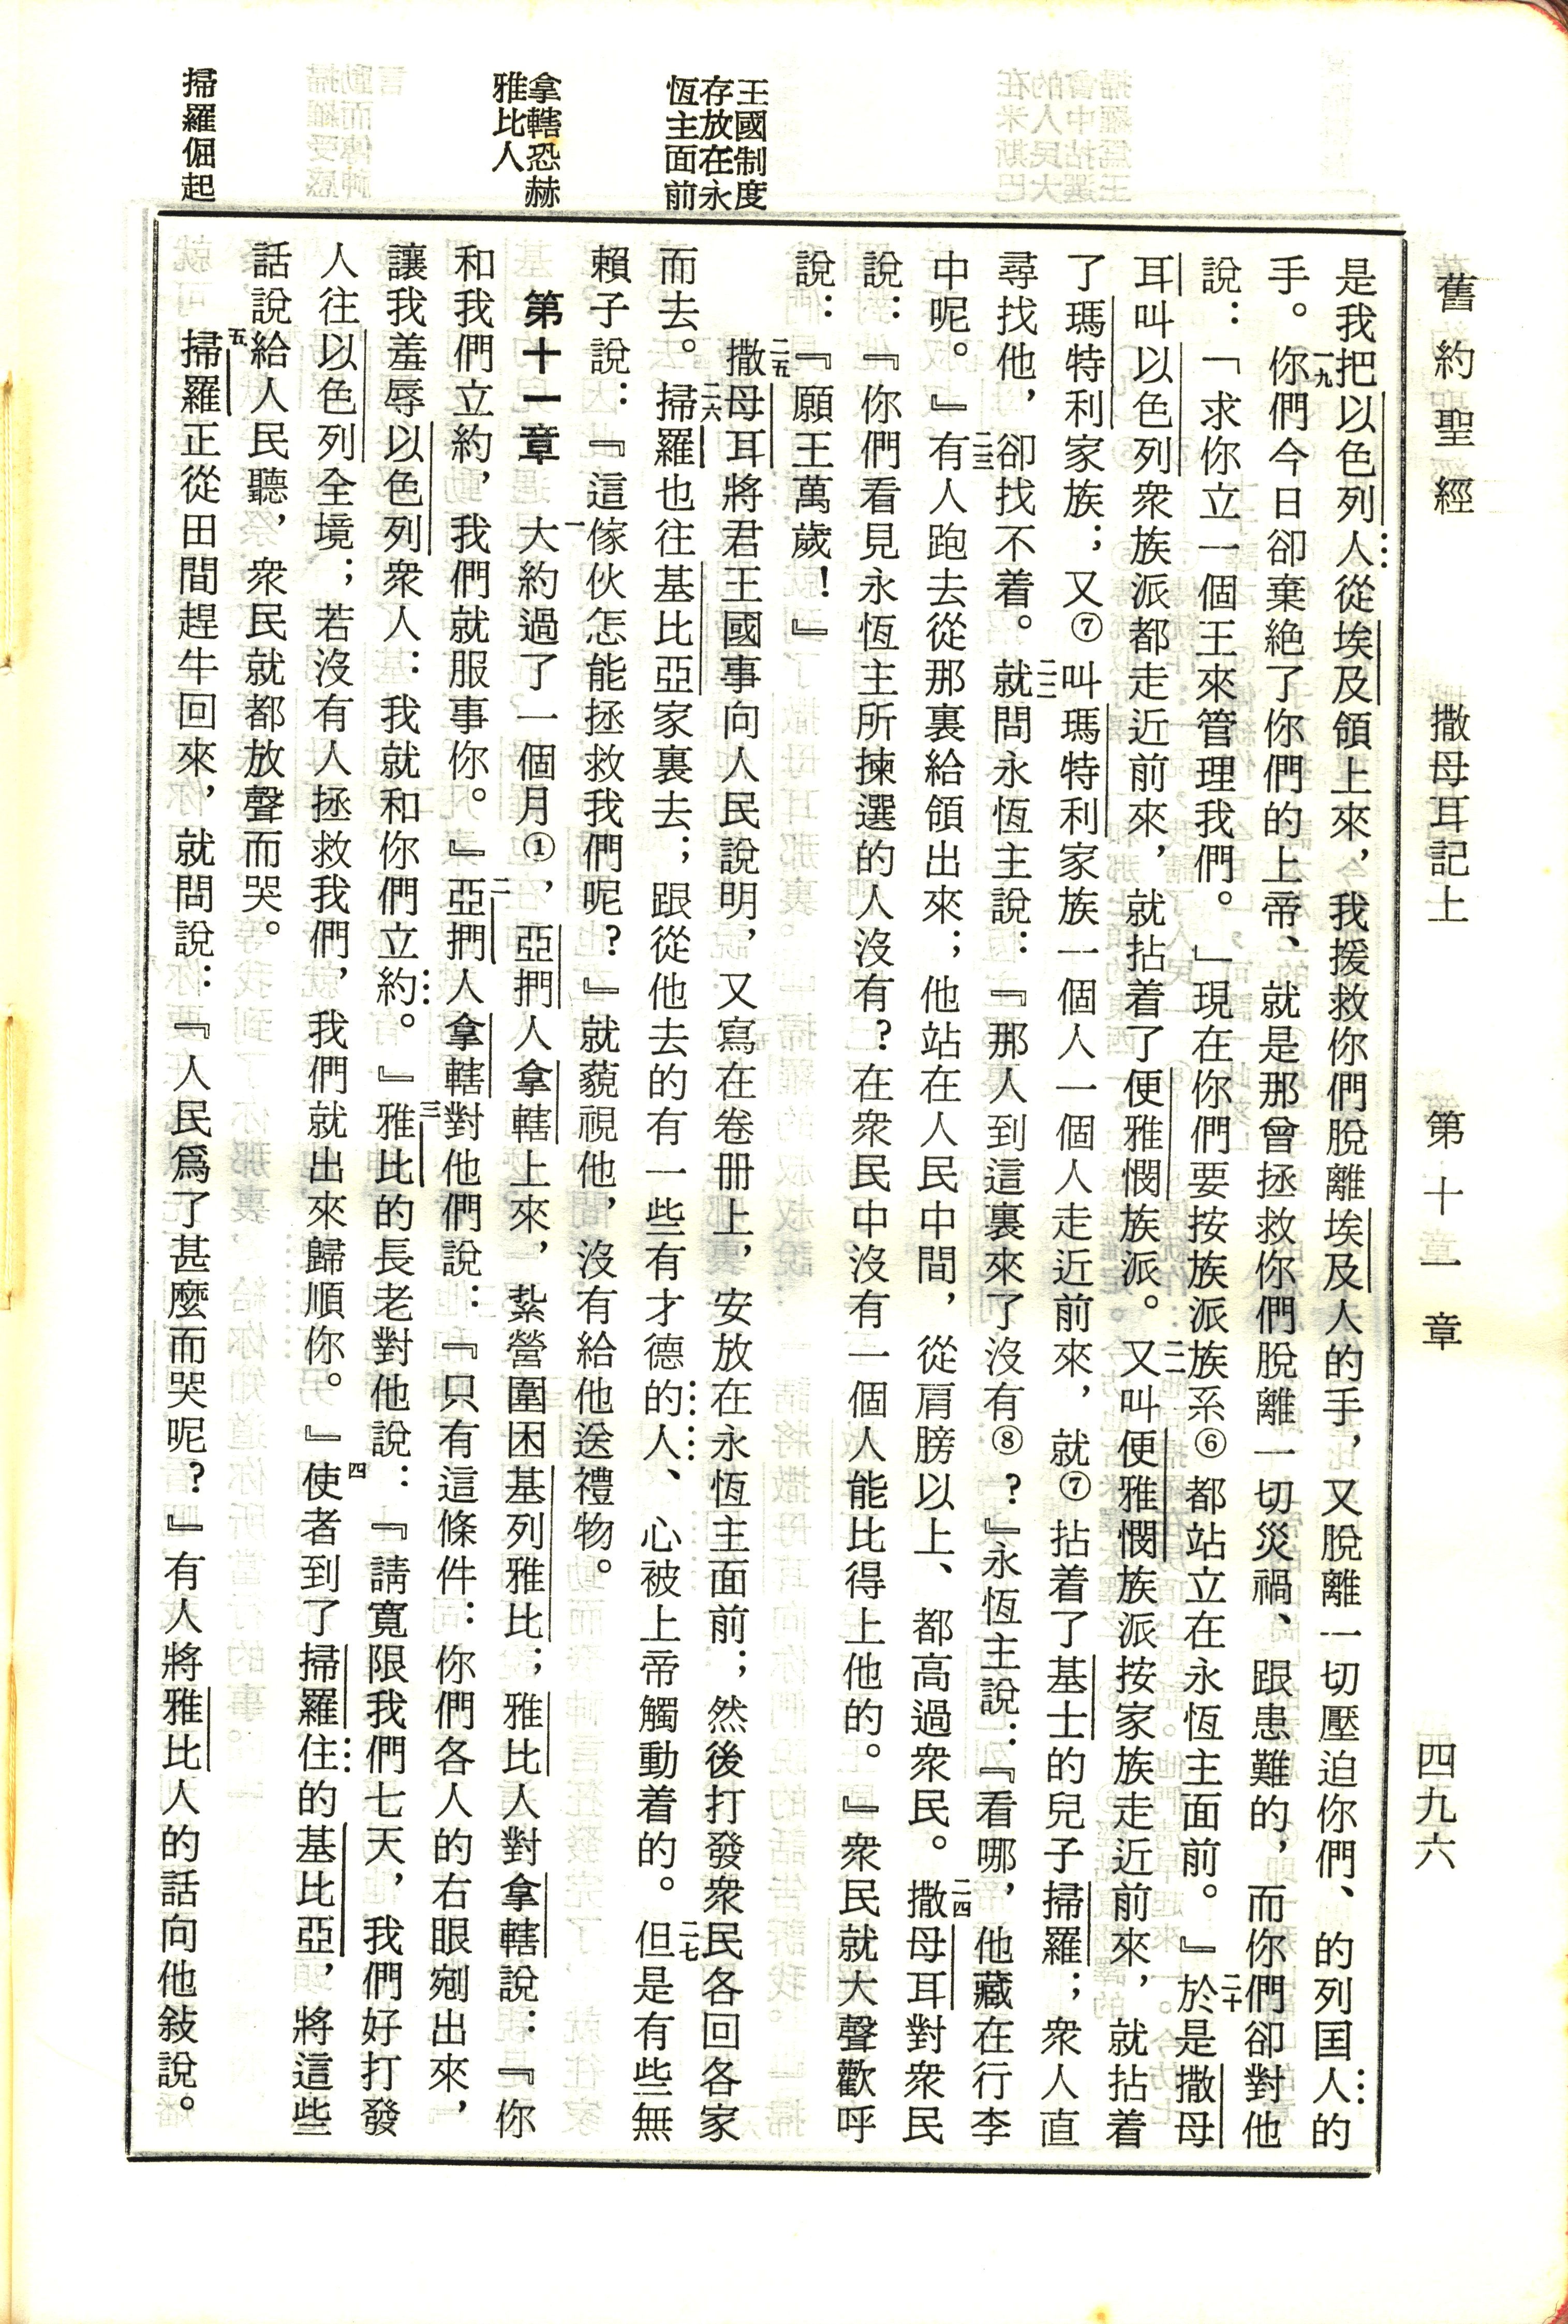 舊約聖經 撒母耳記上 第十一章 四九六
王國制度
存放在永
恆主面前
拿轄恐赫
雅比人
掃羅倔起
是我把以色列人從埃及領上來，我援救你們脫離埃及人的手，又脫離一切壓迫你們、的列国人的
手。一九你們今日卻棄絕了你們的上帝、就是那曾拯救你們脫離一切災禍、跟患難的，而你們卻對他
說：「求你立一個王來管理我們。」現在你們要按族派族系⑥都站立在永恆主面前。』二十於是撒母
耳叫以色列衆族派都走近前來，就拈着了便雅憫族派。二一又叫便雅憫族派按家族走近前來，就拈着
了瑪特利家族；又⑦叫瑪特利家族一個人一個人走近前來，就⑦拈着了基士的兒子掃羅；衆人直
尋找他，卻找不着。二二就問永恆主說：『那人到這裏來了沒有⑧？』永恆主說：『看哪，他藏在行李
中呢。』二三有人跑去從那裏給領出來；他站在人民中間，從肩膀以上、都高過衆民。二四撒母耳對衆民
說：『你們看見永恆主所揀選的人沒有？在衆民中沒有一個人能比得上他的。』衆民就大聲歡呼
說：『願王萬歲！』
二五撒母耳將君王國事向人民說明，又寫在卷冊上，安放在永恆主面前；然後打發衆民各回各家
而去。二六掃羅也往基比亞家裏去；跟從他去的有一些有才德的人、心被上帝觸動着的。二七但是有些無
賴子說：『這傢伙怎能拯救我們呢？』就藐視他，沒有給他送禮物。
第十一章 一大約過了一個月①，亞捫人拿轄上來，紮營圍困基列雅比；雅比人對拿轄說：『你
和我們立約，我們就服事你。』二亞捫人拿轄對他們說：『只有這條件：你們各人的右眼剜出來，
讓我羞辱以色列衆人：我就和你們立約。』三雅比的長老對他說：『請寬限我們七天，我們好打發
人往以色列全境；若沒有人拯救我們，我們就出來歸順你。』四使者到了掃羅住的基比亞，將這些
話說給人民聽，衆民就都放聲而哭。
五掃羅正從田間趕牛回來，就問說：『人民爲了甚麼而哭呢？』有人將雅比人的話向他敍說。